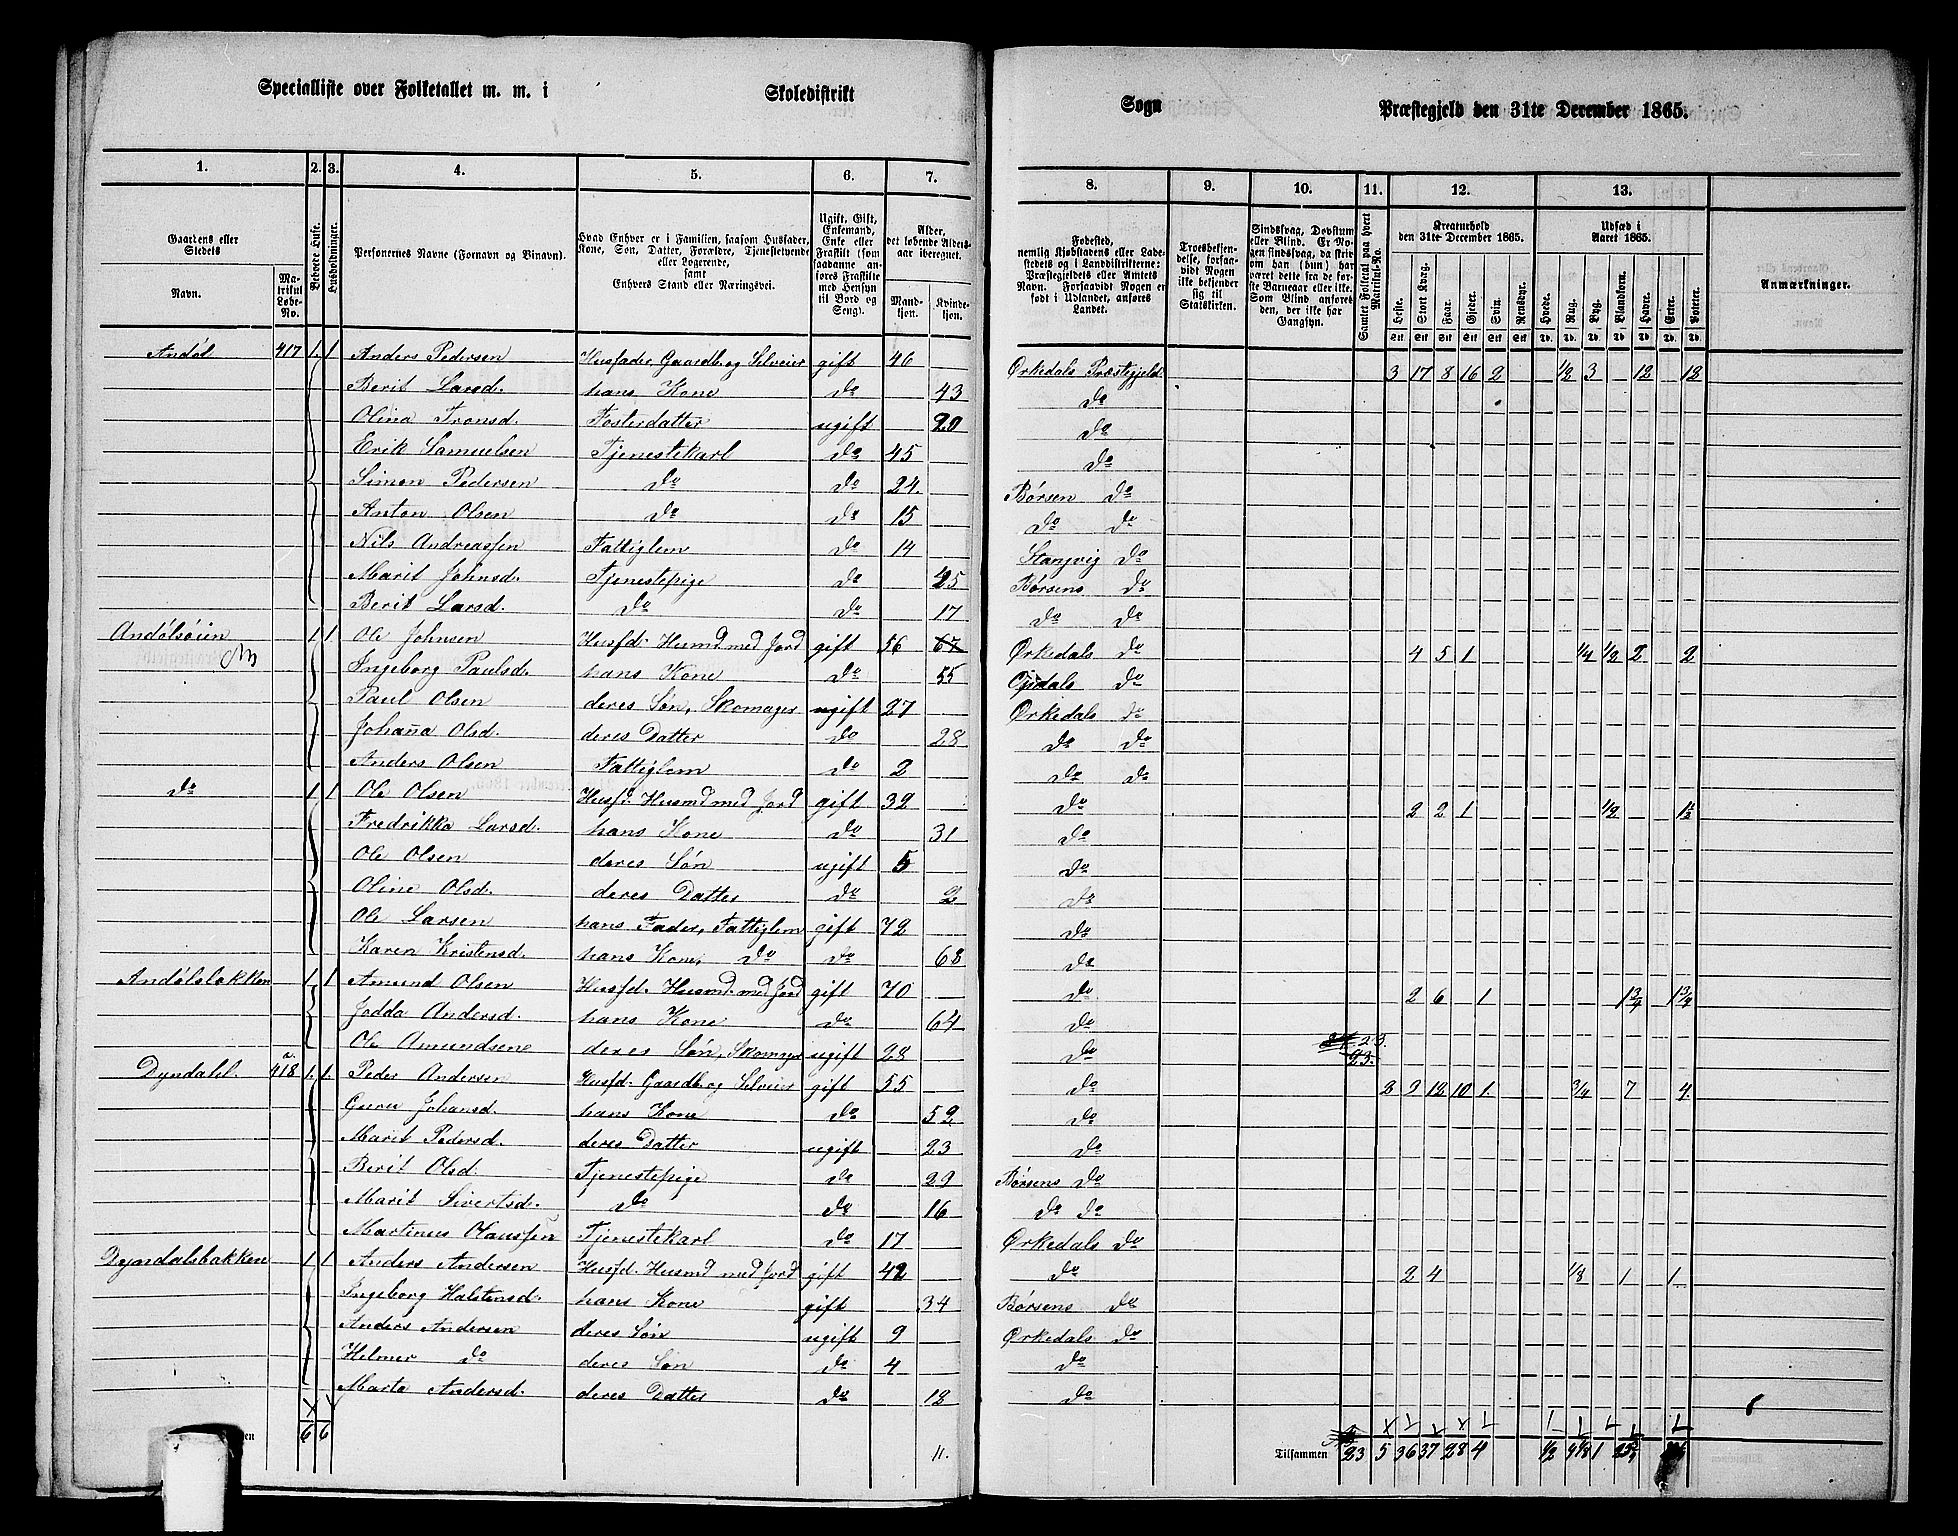 Specialliste over Folketallet m. m. i Skoledistrikt Sogn Præstegjeld den 31te December 1865.
1. 2. 3. 4. 5. 6. 7. 8. 9. 10. 11. 12. 13.
Gaardens eller Stedets Navn. Matrikul Løbe-No. Beboede Huse. Husholdninger. Personernes Navne (Fornavn og Binavn). Hvad Enhver er i Familien, saasom Husfader, Kone, Søn, Datter, Forældre, Tjenestetyende eller Logerende, samt Enhvers Stand eller Næringsvei. Ugift, Gift, Enkemand, Enke eller Fraskilt (som saadanne anføres Fraskilte med Hensyn til Bord og Seng). Alder, det løbende Aldersaar iberegnet. Mandkjøn. Kvindekjøn.
Fødested, nemlig Kjøbstadens eller Ladestedets og i Landdistrikterne: Præstegjeldets eller Amtets Navn. Forsaavidt Nogen er født i Udlandet, anføres Landet. Troesbekjendelse, forsaavidt Nogen ikke bekjender sig til Statskirken. Sindssvag, Døvstum eller Blind. Er Nogen sindssvag, da skrives om han (hun) har været dette fra de første Barneaar eller ikke. Som Blind anføres den, der ikke har Gangsyn. Samlet Folketal paa hvert Matrikul-No. Kreaturhold den 31te December 1865. Heste. Stort Kvæg. Faar. Gjeder. Svin. Rensdyr. Udsæd i Aaret 1865. Hvede. Rug. Byg. Blandkorn. Havre. Erter. Poteter. Anmærkninger.
Andøl 417 1. 1 Anders Pedersen Husfader, Gaardb. og Selveier gift 46 Ørkedals Præstegjeld 3 17 8 16 2 1/2 3 12 12
Berit Larsd. hans Kone do 43 do
Olina Tronsd. Fosterdatter ugift 20 do
Erik Samuelsen Tjenestekarl do 45 do
Simon Pedersen do do 24. Børsen do
Anton Olsen do do 15 do do
Nils Andreassen Fattiglem do 14 Stangvig do
Marit Johnsd. Tjenestepige do 25 Børsens do
Berit Larsd. do do 17 do do
Andølsøien 1 1. Ole Johnsen Husfd. Husmd med Jord gift 56 67 Ørkedals do 4 5 1 1/4 1/2 2 2
Ingeborg Paulsd. hans Kone do 55 Opdals do
Paul Olsen deres Søn, Skomager ugift 27 Ørkedals do
Johanna Olsd. deres Datter do 28 do do
Anders Olsen Fattiglem do 2 do do
do 1 1 Ole Olsen Husfd. Husmd med Jord gift 32 do 2 2 1 1/2 1½
Fredrikka Larsd. hans Kone do 31 do
Ole Olsen deres Søn ugift 5 do
Oline Olsd. deres Datter do 2 do
Ole Larsen hans Fader, Fattiglem gift 72 do
Karen Kristensd. hans Kone, do do 68 do
Andølsbakken 1. 1 Amund Olsen Husfd. Husmd. med Jord gift 70 do 2 6 1 1¾ 1¾
Jodda Andersd. hans Kone do 64 do
Ole Amundsen deres Søn, Skomager ugift 28 do 23.
23.
Dyndalel. 418 a. 1. 1. Peder Andersen Husfd. Gaardb. og Selveier gift 55 do 2 9 12 10 1. 3/4 7 4.
Guru Johansd. hans Kone do 52 do
Marit Pedersd. deres Datter ugift 23 do
Berit Olsd. Tjenestepige do 29 Børsens do
Marit Sivertsd. do do 16 do do
Martinus Olaussen Tjenestekarl do 17 Ørkedals do
Dyndalsbakken 1 1 Anders Andersen Husfd. Husmd med Jord gift 42 do 2 4 1/8 1 1.
Ingeborg Halstensd. hans Kone gift 34 Børsens do
Anders Andersen deres Søn ugift 9 Ørkedals do
Helmer do deres Søn do 4 do
Marta Andersd. deres Datter do 12 do
6 6 11. Tilsammen 23 5 36 37 28 4 1/2 4 1/8 1